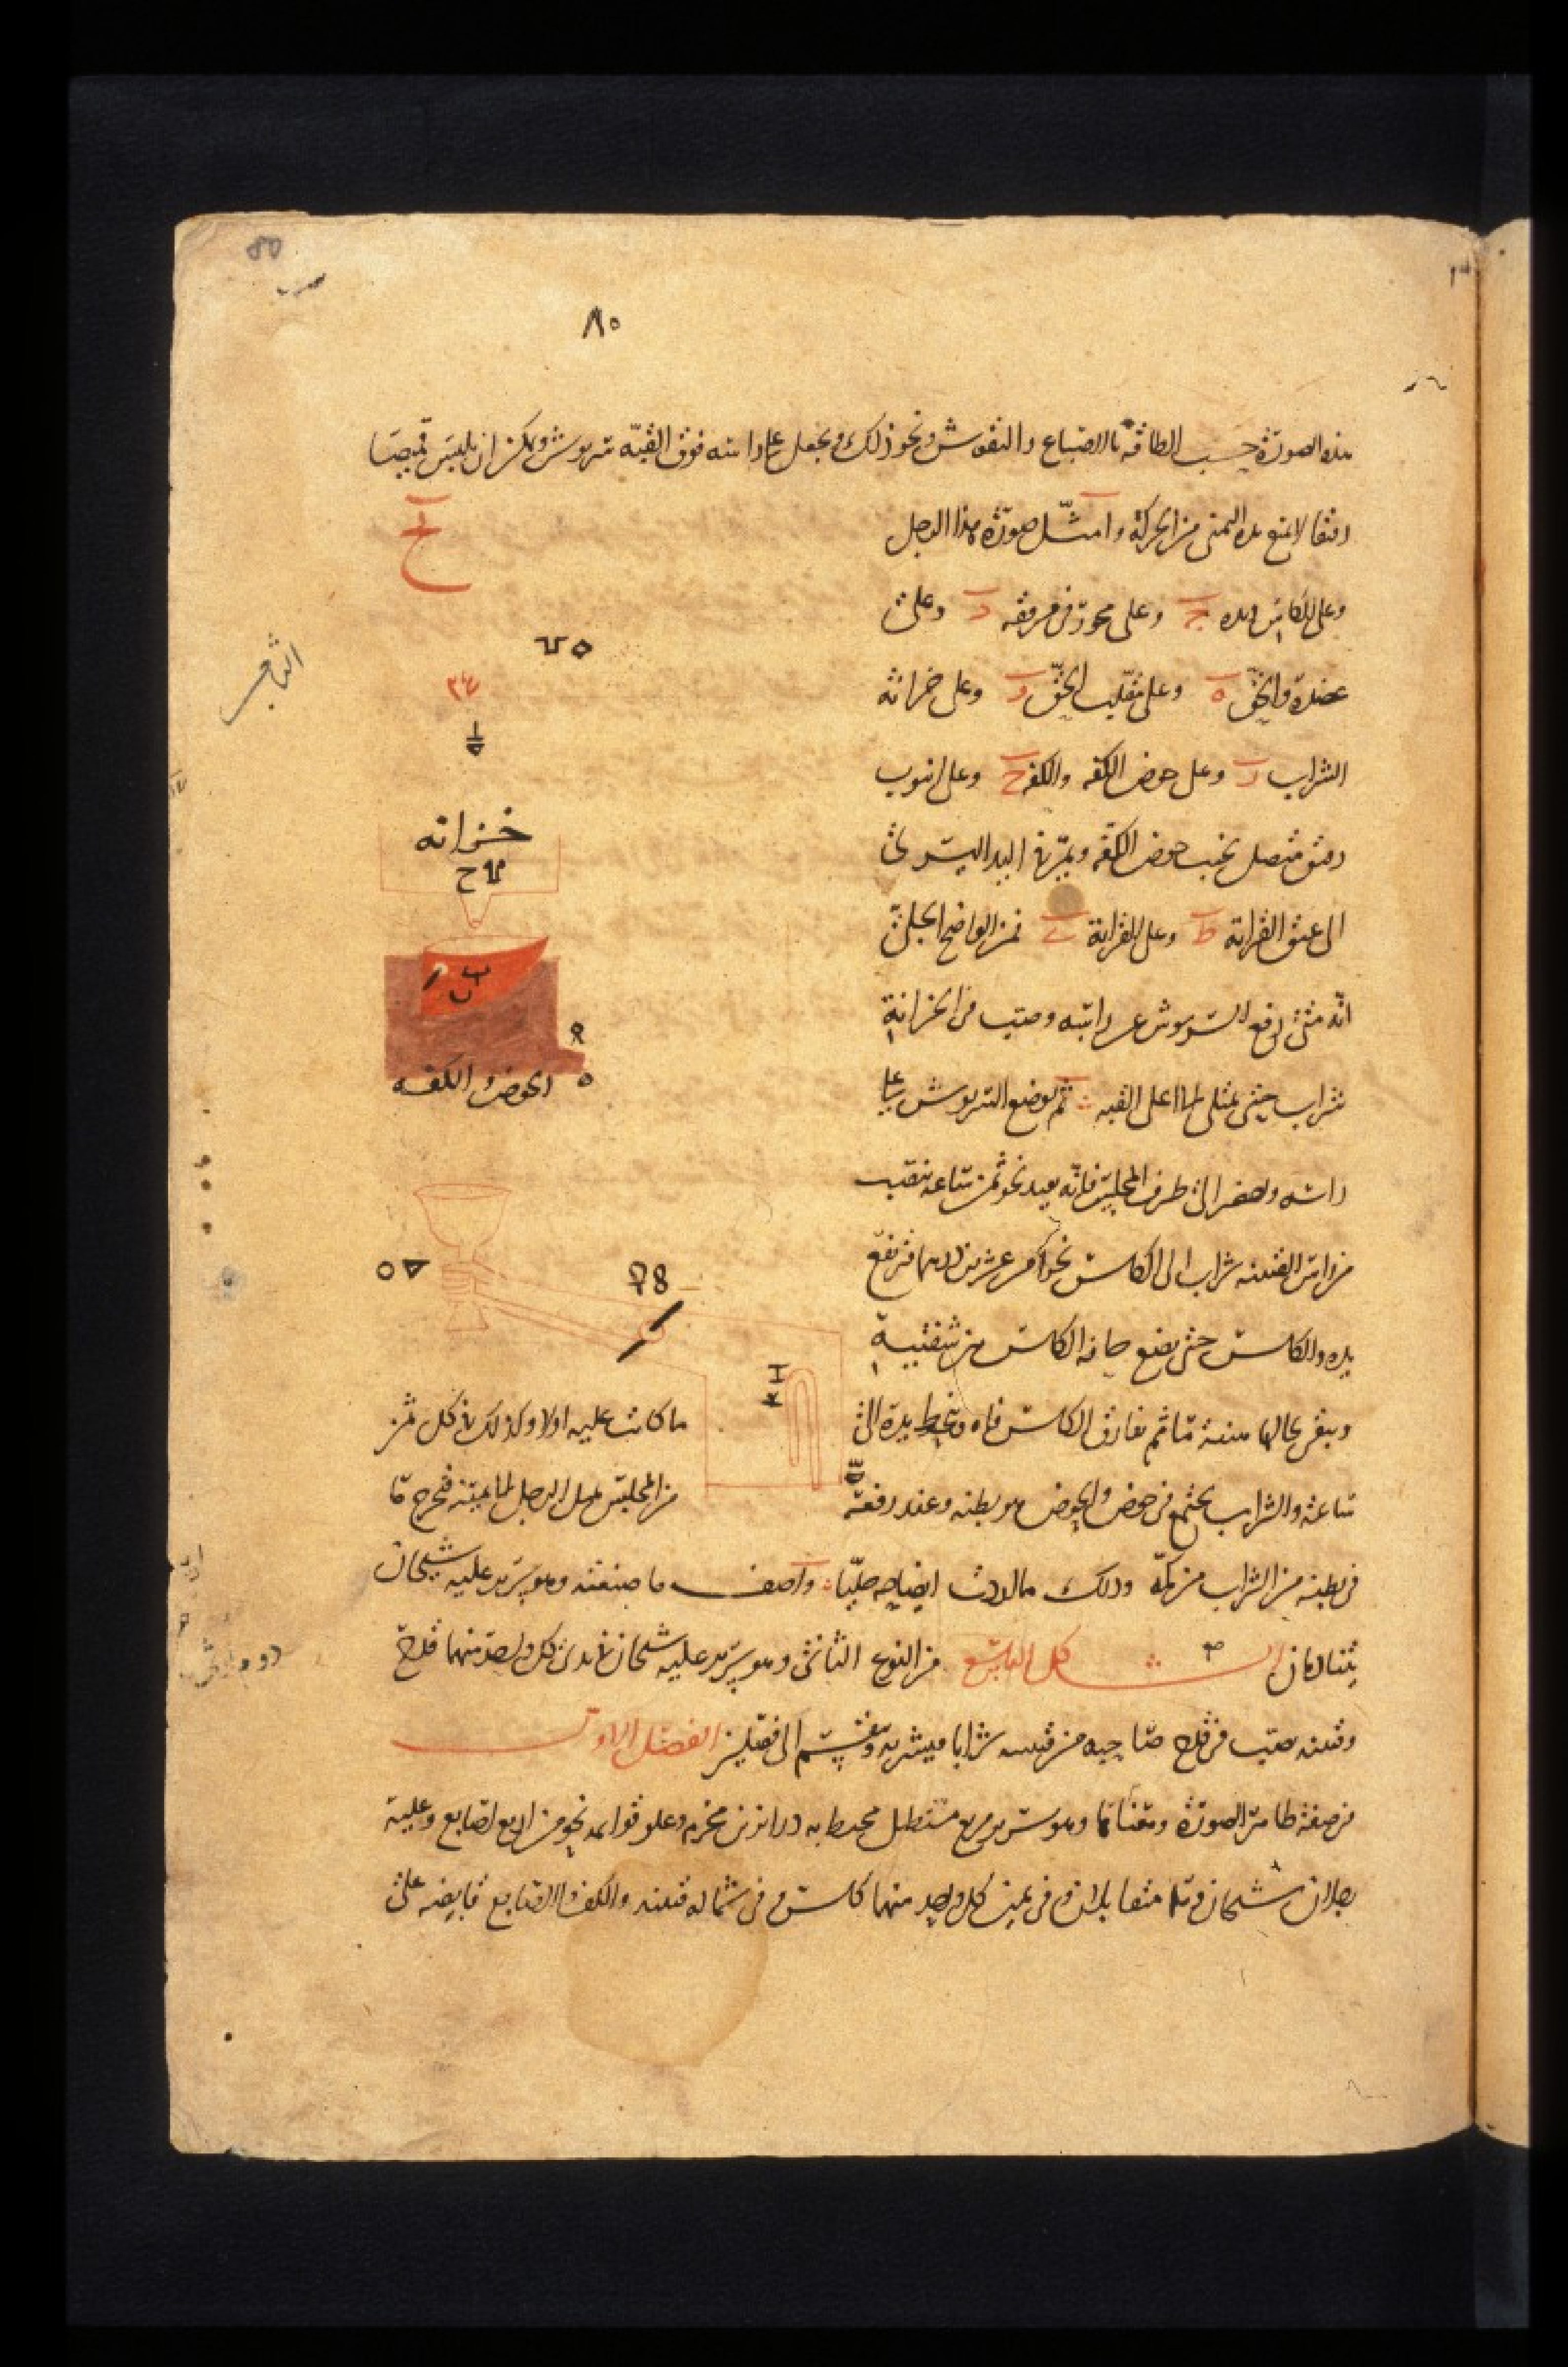 80
٨٥
هذه الصورة حسب الطاقة بالاصباغ والنقوش ونحو ذلك ويجعل على راسه فوق القبه سربوش ويمكن ان يلبس قميصا
رفيعا لا يمنع يده اليمنى من الحركة وامثّل صورة هذا الرجل
وعلى الكاس ويده ج وعلى محور في مرفقه د وعلى
عضده والحق ه وعلى مثقلي الحق و وعلى خزانة
الشراب ز وعلى حوض الكفه والكفه ح وعلى انبوب
دقيق متصل بجنب حوض الكفه ويمر في اليد اليسرى
الى عنق القرابة ط وعلى القرابة ي فمن الواضح الجلي
انه متى رفع السربوش عن راسه وصب في الخزانة
شراب حتى يمتلى الى اعلى القبه ثم يوضع السربوش على
راسه ويحضر الى طرف المجلس فانه بعد نحو ثمن ساعة ينصب
من راس القنينه شراب الى الكاس نحوا من عشرين درهما فترتفع
يده والكاس حتى يضع حافة الكاس بين شفتيه
ويبقى بحالها هنيئة ما ثم يفارق الكاس فاه وتنحط يده الى
ما كانت عليه اولا وكذلك في كل ثمن
ساعة والشراب يجتمع في حوض والحوض هو بطنه وعند رفعه
من المجلس يميل الرجل الى ما يمينه فيخرج ما
في بطنه من الشراب من كمه وذلك ما اردت ايضاحه جليا واصف ما صنعته وهو سرير عليه شيخان
يتنادمان الشكل التاسع من النوع الثاني وهو سرير عليه شيخان في يدى كل واحد منهما قدح
وقنينه يصب في قدح صاحبه من قنينته شرابا فيشربه وينقسم الى فصلين الفصل الاول
في صفة ظاهر الصورة ومعناها وهو سرير مربع مستطيل محيط به درابزين مخرم وعلو قوايمه نحو من اربع اصابع وعليه
رجلان شيخان وهما متقابلان وفي يمين كل واحد منهما كاس وفي شماله قنينه والكف والاصابع قابضه على
خزانه
الحوض والكفه